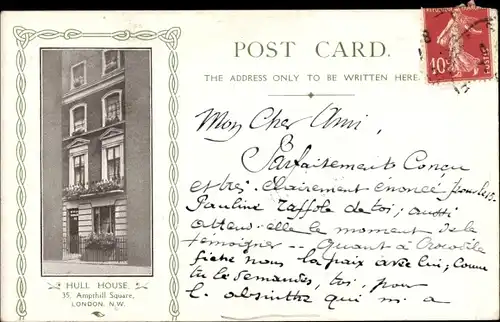 POST CARD.
THE ADDRESS ONLY TO BE WRITTEN HERE.
10c
HULL HOUSE.
35, Ampthill Square,
LONDON. N.W.
Mon Cher Ami,
Parfaitement Conçu
et très clairement énoncé
Pauline raffole de toi; aussi
attend-elle le moment de le
témoigner -- Quant à Crocodile
fiche nous la paix avec lui, comme
tu le demandes, toi, pour
l'absinthe qui m'a